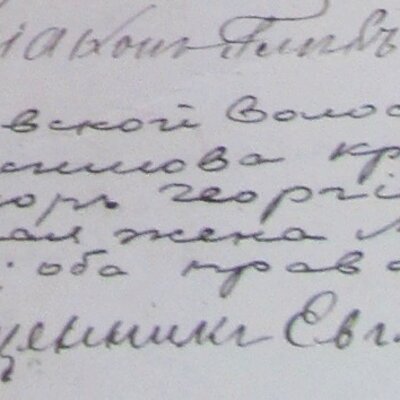 іаконъ Глѣбъ
вской Волос
нилова кр
оръ Георгі
ная жена М
оба прав
щенникъ Евг